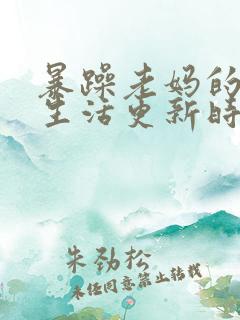 暴躁老妈的
生活更新时
朱劲松
未经同意禁止转载